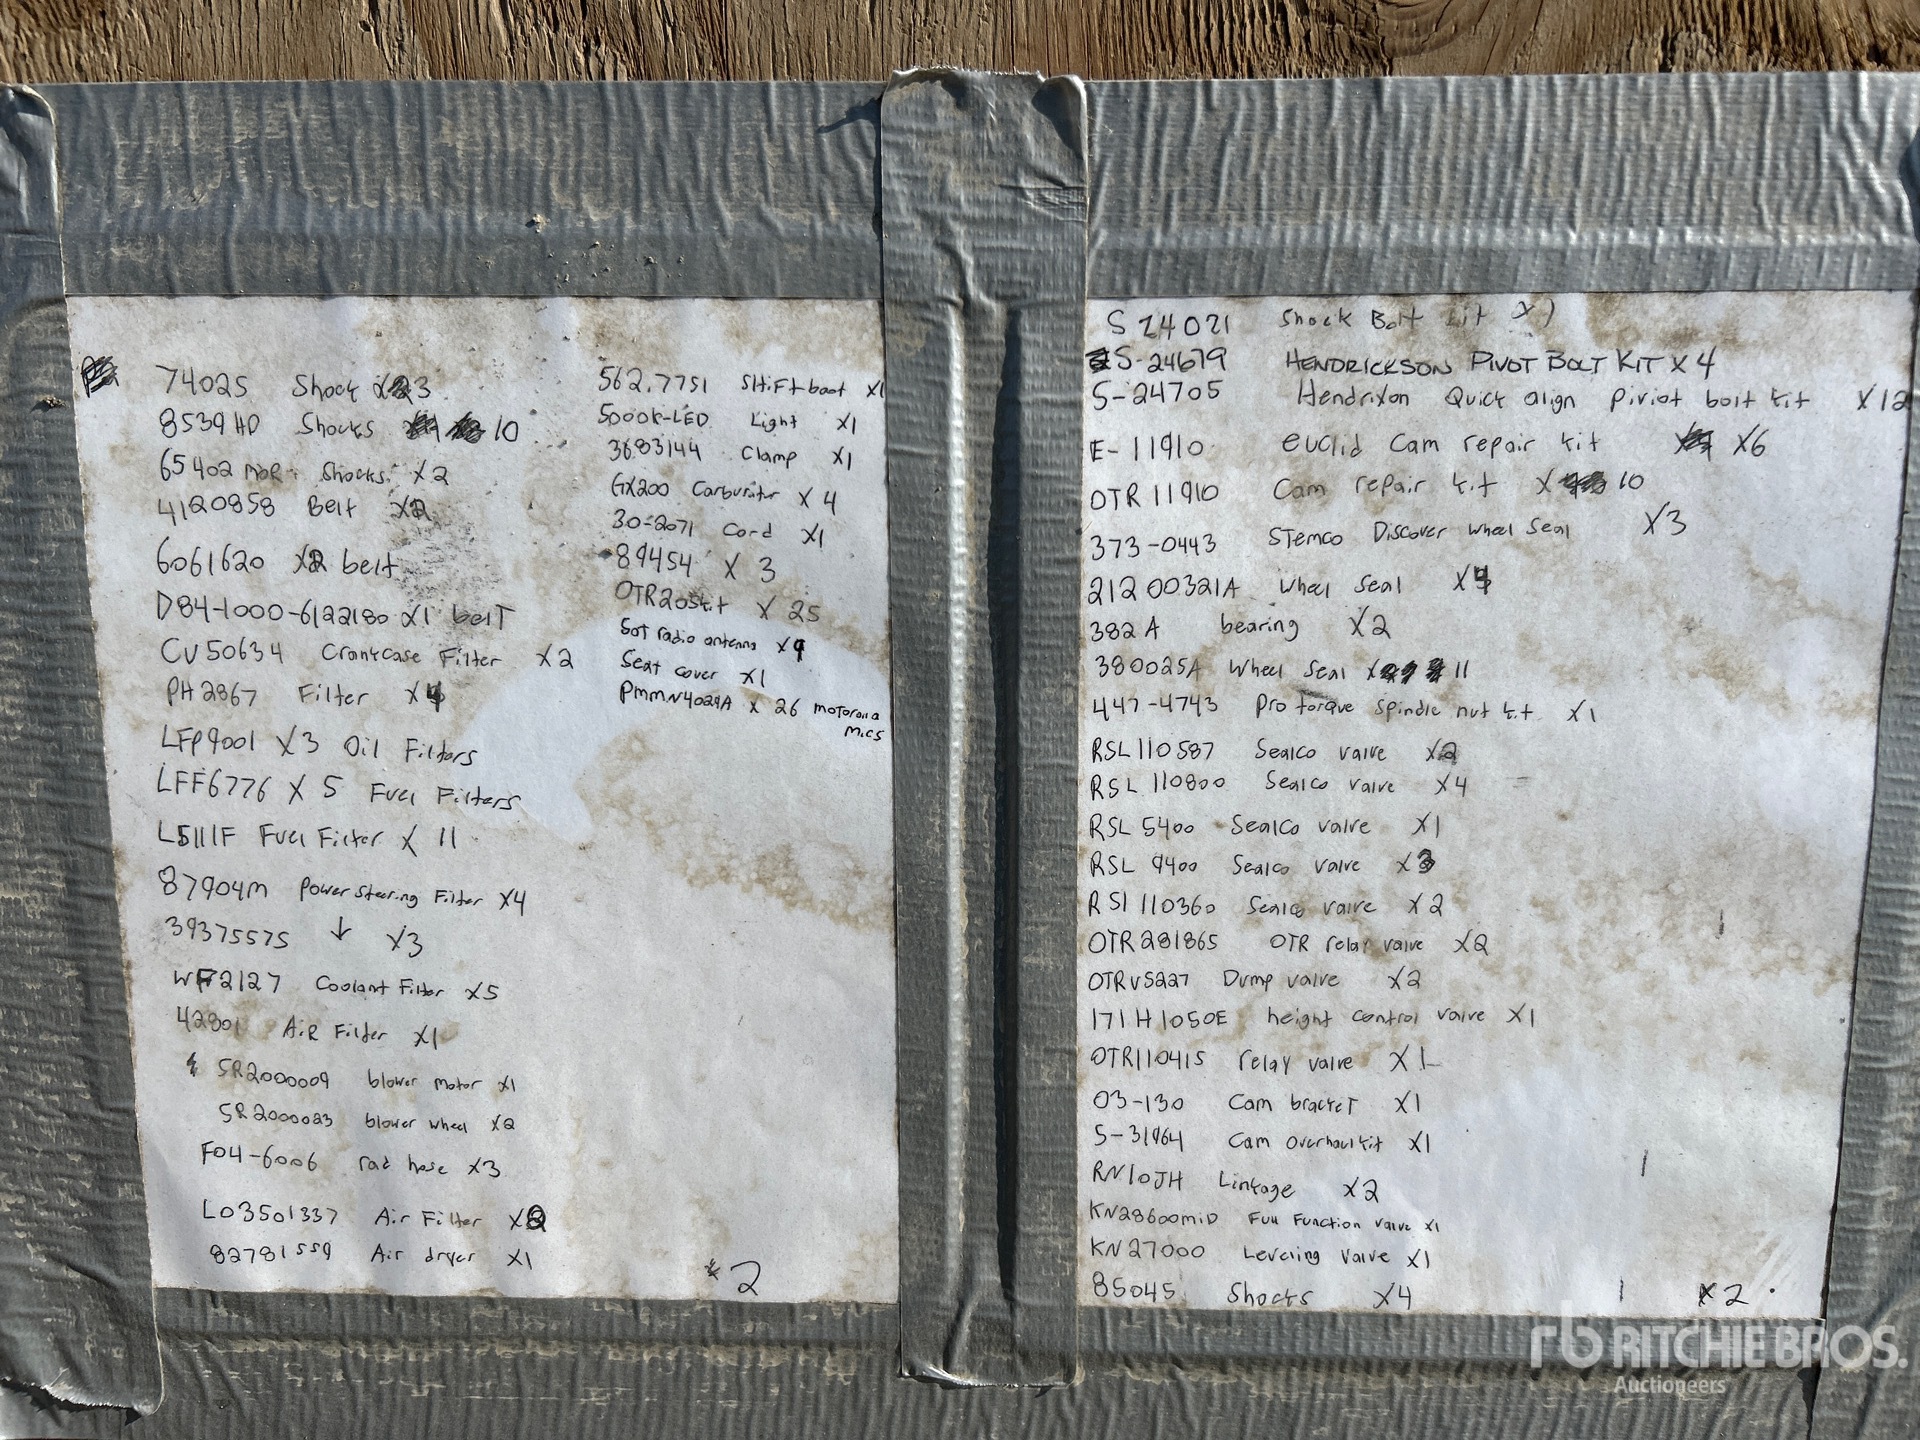 74025 Shock x3
8539 HD Shocks 10
65402 Shocks x2
4120858 Belt x2
6061620 x2 belt
D84-1000-6122180 x1 belT
CV50634 Crankcase Filter x2
PH2867 Filter x4
LFP9001 x3 Oil Filters
LFF6776 x 5 Fuel Filters
L5111F Fuel Filter x 11
87904m Power Steering Filter x4
39375575 ↓ x3
WF2127 Coolant Filter x5
42801 AiR Filter x1
SR2000009 blower motor x1
SR2000023 blower wheel x2
F04-6006 rad hose x3
L03501337 Air Filter x2
82781559 Air dryer x1
562.7751 Shift boot x1
5000K-LED Light x1
3683144 Clamp x1
GX200 Carburator x 4
30-2071 Cord x1
89454 x 3
OTR205kit x 25
radio antenna x9
Seat cover x1
PMMN4029A x 26 motorolla
mics
x2
S 24021 Shock Bolt kit x
S-24679 HENDRICKSON PIVOT BOLT KIT x 4
S-24705 Hendrixon Quick align Piviot bolt kit x12
E-11910 euclid Cam repair kit x6
OTR 11910 Cam repair kit x 10
373-0443 STemco Discover wheel seal x3
212 00321A wheel seal x4
382A bearing x2
380025A Wheel Seal x 11
447-4743 Pro torque spindle nut kit x1
RSL110587 Sealco valve x2
RSL 110800 Sealco valve x4
RSL 5400 Sealco valve x1
RSL 9400 Sealco valve x3
RSl 110360 Sealco valve x2
OTR 281865 OTR relay valve x2
OTRV5227 Dump valve x2
171H1050E height control valve x1
OTR110415 relay valve x1
03-130 Cam bracket x1
S-31964 Cam overhaul kit x1
RN10JH Linkage x2
KN28600miD Full Function valve x1
KN27000 Leveling valve x1
85045 Shocks x4
x2
rb RITCHIE BROS.
Auctioneers